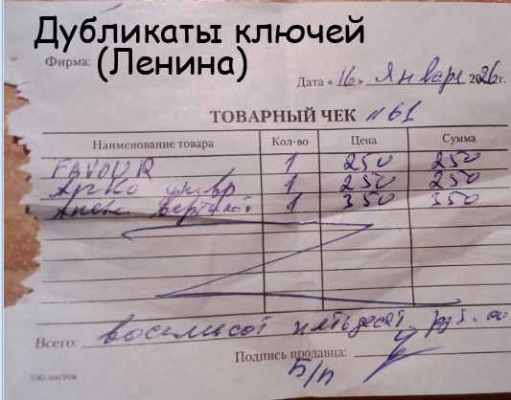 Дубликаты ключей
(Ленина)
Фирма:
Дата «16» Января 2026г.
ТОВАРНЫЙ ЧЕК №61
Наименование товара Кол-во Цена Сумма
FAVOUR 1 250 250
1 250 250
1 350 350
Всего: восемьсот пятьдесят руб. 00
Подпись продавца:
Б/п